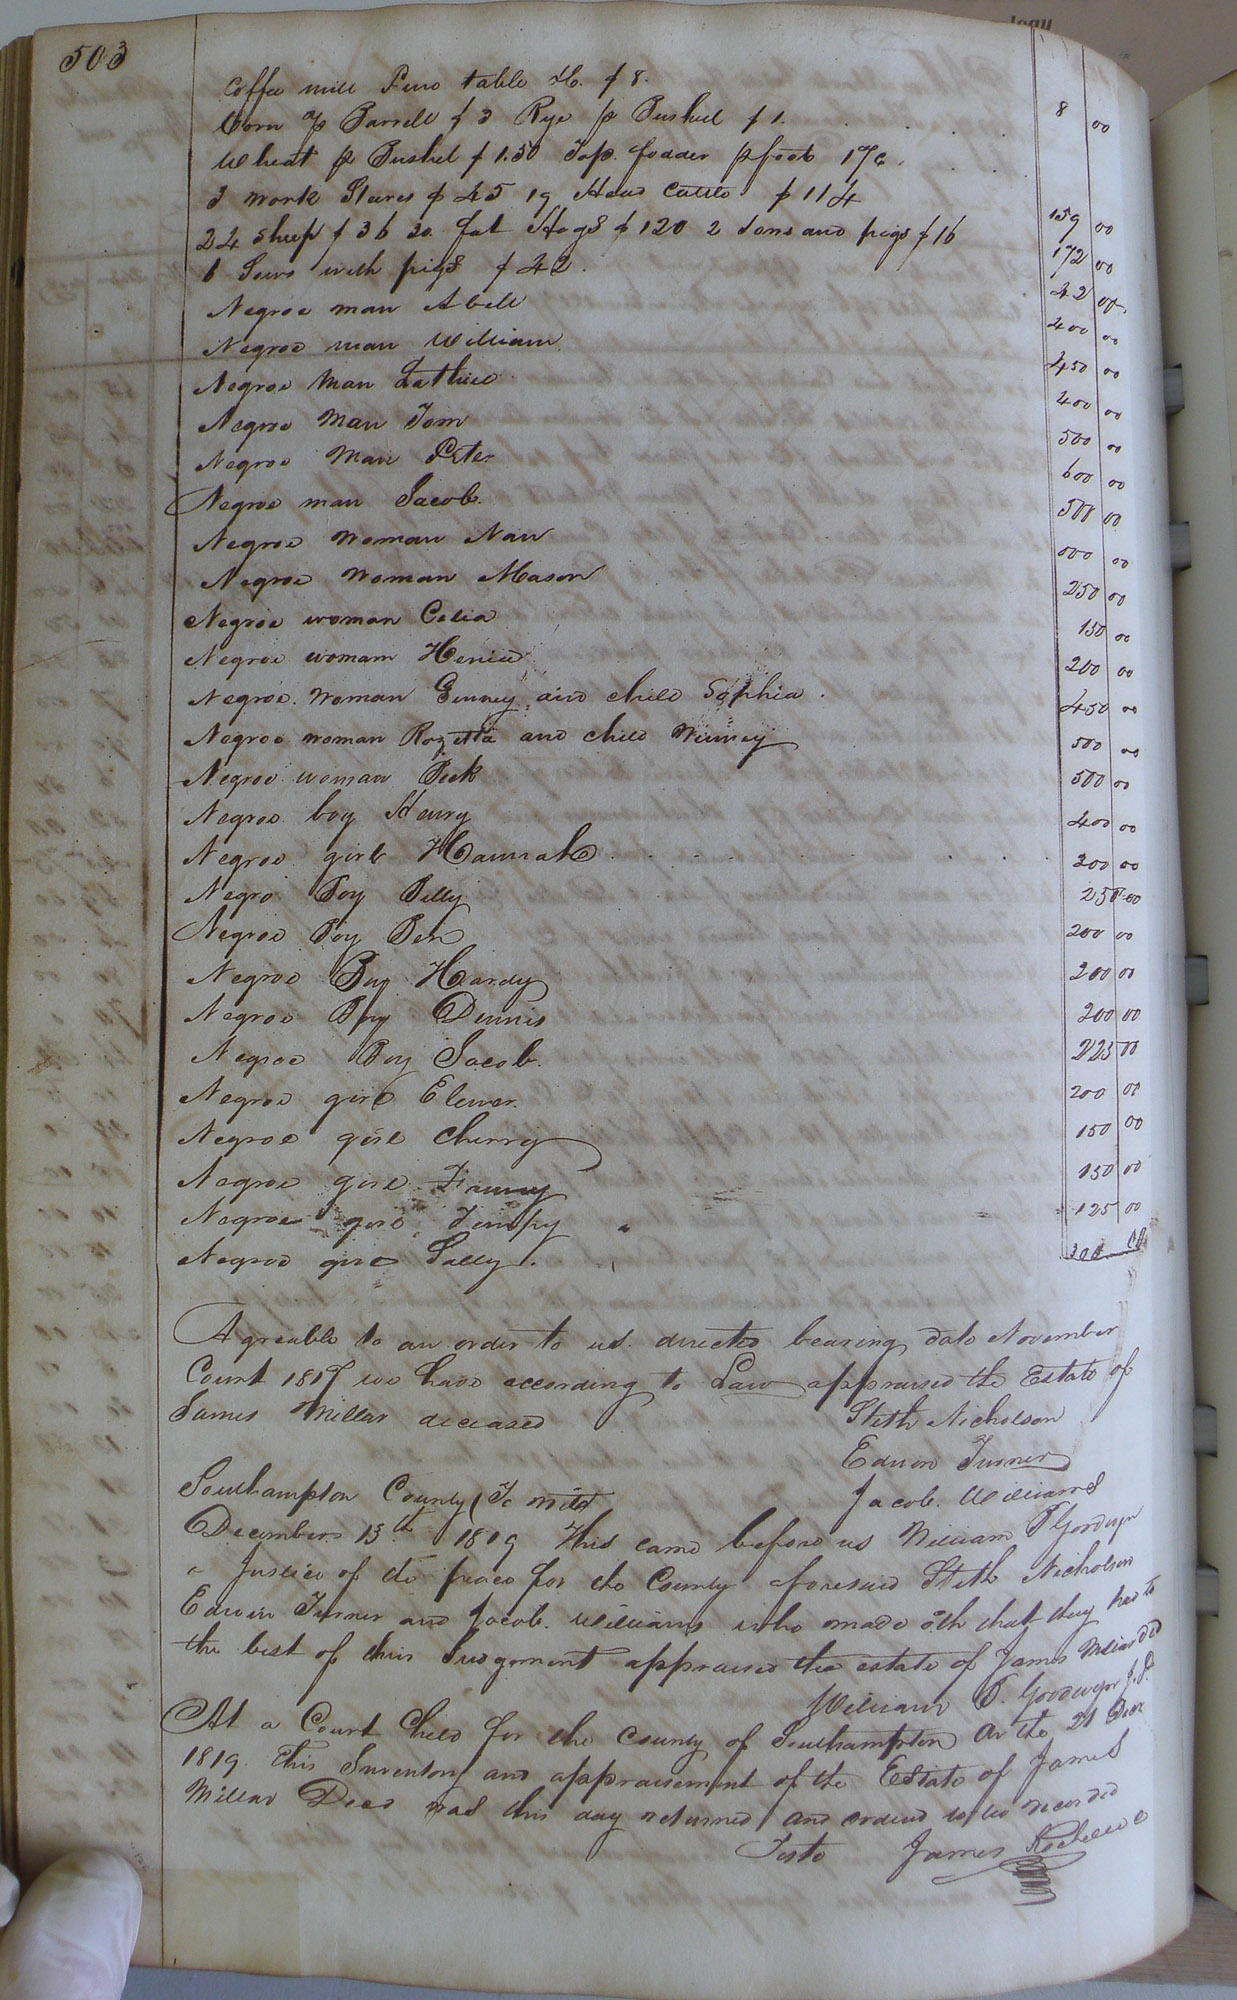 503
Coffee mill Pine table &c. $ 8. 8 00
Corn p Barrell $ 3 Rye p Bushel $ 1.
Wheat p Bushel $ 1.50 Top fodder p foot 17c.
3 work Steers $ 45 19 Head Cattle $ 114 159 00
24 Sheep $ 36 30 fat Hogs $ 120 2 Sows and pigs $ 16 172 00
6 Sows with pigs $ 42. 42 00
Negroe man Abell 400 00
Negroe man William 450 00
Negroe Man 400 00
Negroe Man Tom 500 00
Negroe Man Peter 600 00
Negroe man Jacob. 500 00
Negroe Woman Nan 000 00
Negroe Woman Mason 250 00
Negroe woman Celia 150 00
Negroe woman 200 00
Negroe Woman Ginney and child Sophia. 450 00
Negroe woman Rozetta and child Winney 500 00
Negroe woman Beck 500 00
Negroe boy Henry 400 00
Negroe girl Hannah 300 00
Negro Boy Billy 250 00
Negroe Boy Ben 200 00
Negroe Boy Hardy 200 00
Negroe Boy Dennis 200 00
Negroe Boy Jacob. 225 00
Negroe girl 200 00
Negroe girl Cherry 150 00
Negroe girl Fanny 150 00
Negroe girl Tempy 125 00
Negroe girl Sally. 300 00
Agreable to an order to us directed bearing date November
Court 1819 we have according to Law appraised the Estate of
James Millar deceased Stith Nicholson
Edwin Turner
Jacob. Williams
Southampton County (To wit
December 15th 1819 This came before us William B Goodwyn
a Justice of the peace for the County aforesaid Stith Nicholson
Edwin Turner and Jacob. Williams who made oth that they had to
the best of their Judgement appraised the estate of James Millar Decd
William B. Goodwyn J.P.
At a Court held for the County of Southampton on the 21 Decr
1819. This Inventory and appraisement of the Estate of James
Millar Decd was this day returned and ordered to be recorded
Teste James Rochelle C